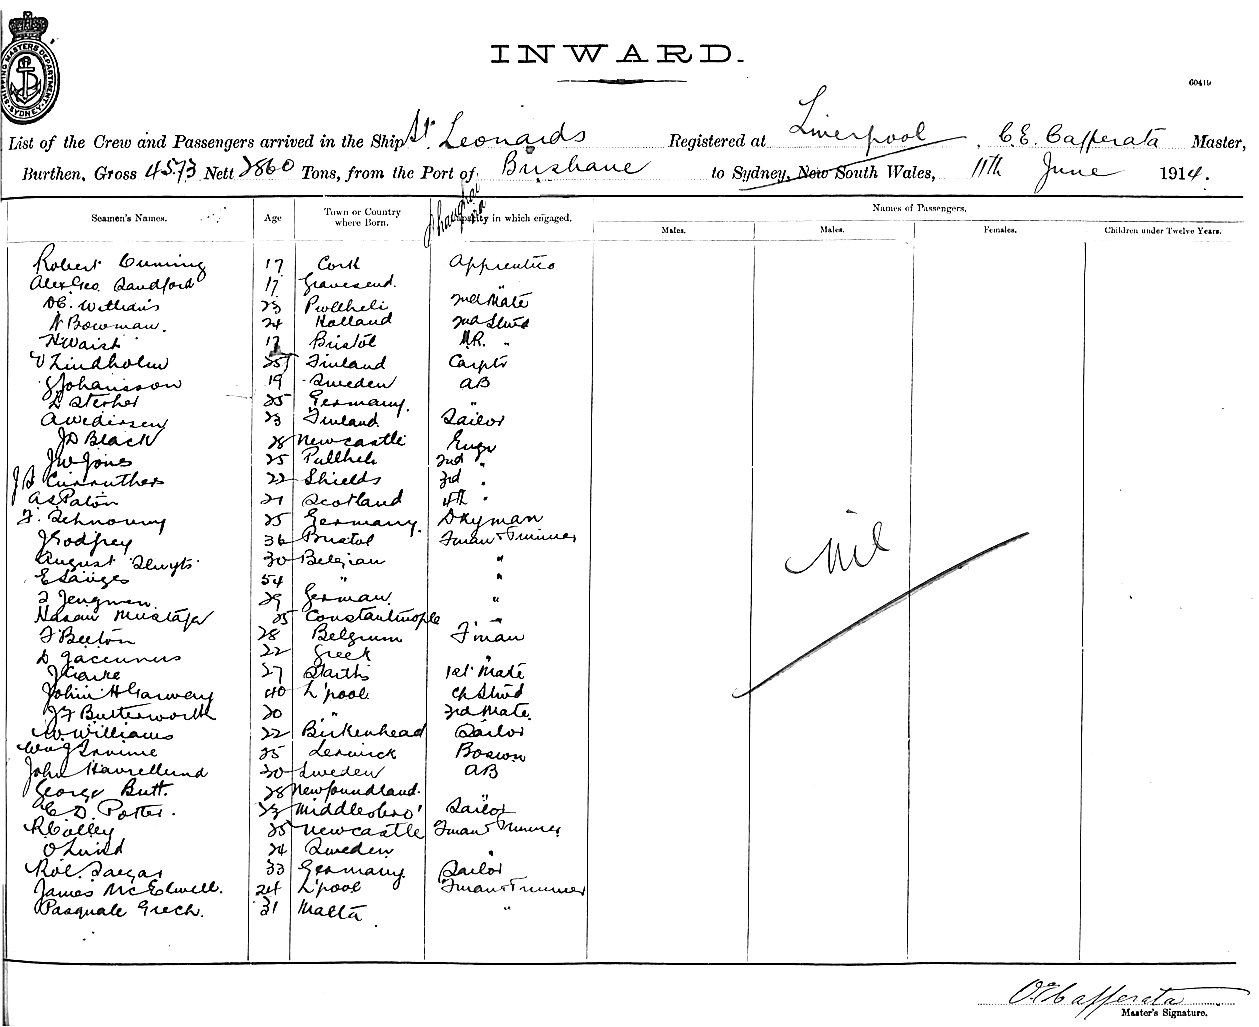 SHIPPING MASTERS DEPARTMENT SYDNEY
INWARD.
60419
List of the Crew and Passengers arrived in the Ship St. Leonards Registered at Liverpool, C.E. Cafferata Master,
Burthen, Gross 4573 Nett 2860 Tons, from the Port of Brisbane to Sydney, New South Wales, 11th June 1914.
Shanghai via
Seamen's Names. Age Town or Country where Born. Capacity in which engaged. Names of Passengers.
Males. Males. Females. Children under Twelve Years.
Robert Cuming 17 Cork Apprentice
Alex Geo. Sandford 17 Gravesend. "
23 Pwllheli 2nd Mate
Bowman. 24 Holland 2nd Stwd
17 Bristol M.R. "
Lindholm 25 Finland Carptr
Johansson 19 Sweden AB
25 Germany. "
23 Finland Sailor
J D Black 28 Newcastle Engr
J W Jones 25 Pwllheli 2nd "
22 Shields 3rd "
A S Paton 21 Scotland 4th "
25 Germany. Dkyman
J Godfrey 36 Bristol Fman & Trimmer
August Sluyts 30 Belgian "
54 " "
29 German "
Hasan Mustafa 25 Constantinople "
F Beeton 28 Belgium Fman
22 Greek "
J Clarke 27 1st Mate
John H Garwery 40 L'pool Ch Stwd
J F Butterworth 20 " 3rd Mate.
W. Williams 22 Birkenhead Sailor
Wm J Irvine 25 Lerwick Boswn
John 30 Sweden AB
George Butt. 28 Newfoundland. "
D. Potter. 23 Middlesbro' Sailor
R Colley 25 Newcastle Fman & Trimmer
O Lund 24 Sweden "
33 Germany. Sailor
James McElwell. 24 L'pool Fman & Trimmer
Pasquale Grech. 31 Malta "
Nil
C E Cafferata
Master's Signature.